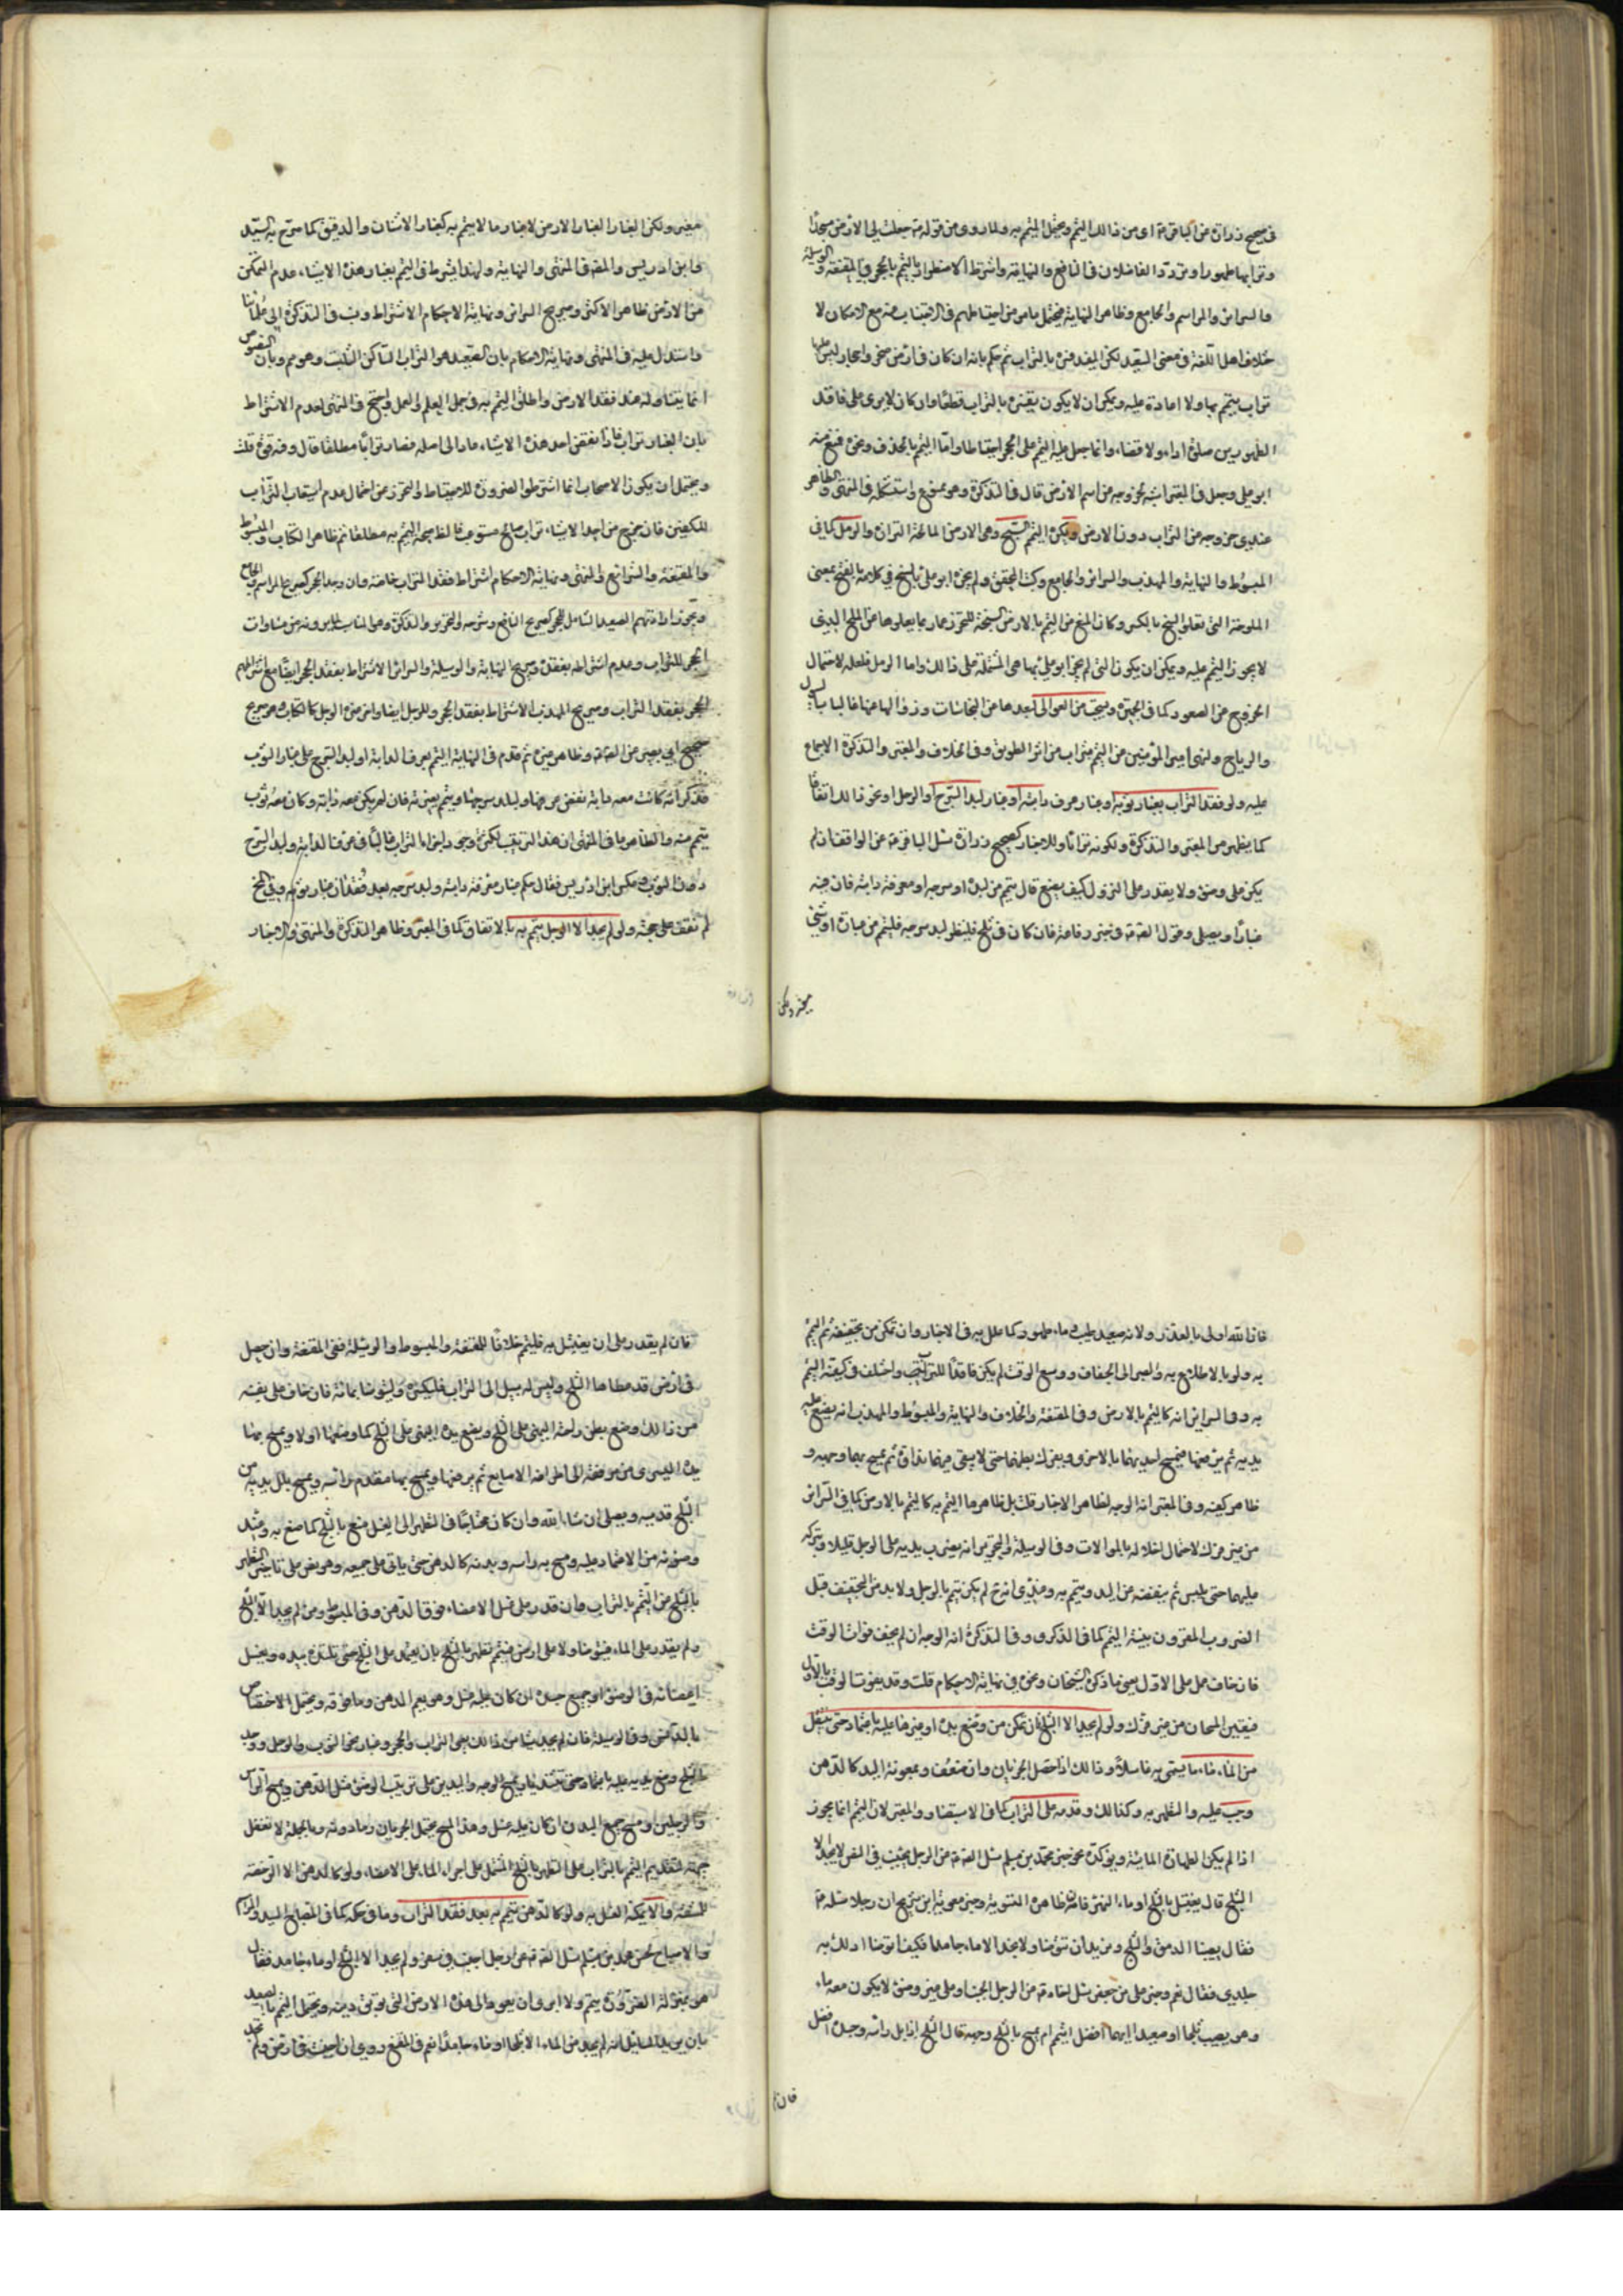 في صحيح زرارة عن الباقر ع اي من ذلك التيمم ويحتمل المتيمم به ولما روى من قوله ص جعلت لي الارض مسجدا
وترابها طهورا وتردد الفاضلان في النافع والنهاية واشترط الاضطرار بالتيمم بالحجر في المقنعة والوسيلة
والسرائر والمراسم والجامع وظاهر النهاية فيحتمل بما مر من احتياطهم في الاجتناب عنه مع الامكان لا
خلاف اهل اللغة في معنى الصعيد لكن المفيد فسره بالتراب ثم حكم بانه ان كان في ارض صخر واحجار ليس عليها
تراب يتيمم بها ولا اعادة عليه ويمكن ان لا يكون يفسره بالتراب قطعا وان كان لا يرى على فاقد
الطهورين صلوة اداء ولا قضاء وانما جعل عليه التيمم على الحجر احتياطا واما التيمم بالخزف ونحوه فمنع منه
ابو علي وجعل في المعتبر اشبه لخروجه من اسم الارض قال في التذكرة وهو ممنوع واستشكله في المنتهى والظاهر
عندي خروجه من التراب دون الارض ويكره التيمم بالسبخ وهي الارض المالحة النزازة والرمل كما في
المبسوط والنهاية والمهذب والسرائر والجامع وكتب المحقق ولم يجزه ابو علي بالسبخ في كلامه بالفتح بمعنى
الملوحة التي تعلو السبخ بالكسر وكان المنع من التيمم بالارض السبخة للتحرز عما ربما يعلوها من الملح الذي
لا يجوز التيمم عليه ويمكن ان يكون التي لم يجز ابو علي بها هي المشتملة على ذلك واما الرمل فلعله لاحتمال
الخروج من الصعود كما في الجمهرة ويستحب من العوالي لبعدها من النجاسات وزوالها عنها غالبا بالسيول
والرياح ولنهي امير المؤمنين من التيمم بتراب من اثر الطريق وفي الخلاف والمعتبر والتذكرة الاجماع
عليه ولو فقد التراب بغبار ثوبه وغبار عرف دابته او غبار لبد السرج او الرحل او نحو ذلك اتفاقا
كما يظهر من المعتبر والتذكرة ولكونه ترابا وللاخبار كصحيح زرارة سئل الباقر ع عن المواقف ان لم
يكن على وضوء ولا يقدر على النزول كيف يصنع قال يتيمم من لبده او سرجه او معرفة دابته فان فيه
غبارا ويصلي وقول الصادق ع في خبر رفاعة فان كان في ثلج فلينظر لبد سرجه فليتيمم من غباره او شيء
مغبر ولكن
مغبر ولكن الغبار الغبار الارض لا غبار ما لا يتيمم به كغبار الاشنان والدقيق كما صرح به السيد
وابن ادريس والمصنف في المنتهى والنهاية ولهذا يشترط في التيمم بغبار هذه الاشياء عدم التمكن
من الارض ظاهر الاكثر وصريح السرائر ونهاية الاحكام الاشتراط ونسب في التذكرة الى علمائنا
واستدل عليه في المنتهى ونهاية الاحكام بان الصعيد هو التراب الساكن الثابت وهو مم وبان النصوص
انما يتناوله عند فقد الارض واطلق التيمم به في جمل العلم والعمل واحتج في المنتهى لعدم الاشتراط
بان الغبار تراب فاذا نفض احد هذه الاشياء عاد الى اصله فصار ترابا مطلقا قال وفيه قوة قلت
ويحتمل ان يكون الاصحاب انما اشترطوا الضرورة للاحتياط والتحرز عن احتمال عدم استيعاب التراب
للكفين فان خرج من احد الاشياء تراب صالح مستوعب فالظ صحة التيمم به مطلقا ثم ظاهر الكتاب والمبسوط
والمقنعة والشرائع والمنتهى ونهاية الاحكام اشتراط فقد التراب خاصة وان وجد الحجر كصريح المراسم والجامع
ويجوز ارادتهم الصعيد الشامل للحجر كصريح النافع وشرحه والتحرير والتذكرة وهو المناسب لما يرونه من مساوات
الحجر للتراب وعدم اشتراطه بفقده وصريح النهاية والوسيلة والسرائر الاشتراط بفقد الحجر ايضا مع اشتراطهم
الحجر بفقد التراب وصريح المهذب الاشتراط بفقد الحجر والوحل ايضا واخر من هذه الوحل كالكتاب وهو صريح
صحيح ابي بصير عن الصادق ع وظاهر غيره ثم قدم في النهاية التيمم بعرف الدابة او لبد السرج على غبار الثوب
فذكر انه كانت معه دابة نفض عرفها ولبد سرجها ويتيمم بغبرته فان لم يكن معه دابة وكان معه ثوب
يتيمم منه والظاهر ما في المنتهى ان هذا الترتيب لكثرة وجود اجزاء التراب غالبا في عرف الدابة ولبد السرج
دون الثوب وعكس ابن ادريس فقال حكم غبار معرفة دابته ولبد سرجه بعد فقدان غبار ثوبه وفي كلٍّ
لم نقف على حجته ولو لم يجد الا الوحل يتيمم به بالاتفاق كما في المعتبر وظاهر التذكرة والمنتهى والاخبار
فان الله اولى بالعذر ولانه صعيد طيب وماء طهور كما علل به في الاخبار وان تمكن من تجفيفه ثم التيمم
به ولو بالاطلاع به والصبر الى الجفاف ووسع الوقت لم يكن فاقدا للتراب واختلف في كيفية التيمم
به وفي السرائر انه كالتيمم بالارض وفي المقنعة والخلاف والنهاية والمبسوط والمهذب انه يضع عليه
يديه ثم يرفعهما فيمسح احديهما بالاخرى ويفرك بطنهما حتى لا يبقى فيهما نداوة ثم يمسح بهما وجهه و
ظاهر كفيه وفي المعتبر انه الوجه لظاهر الاخبار قلت بل ظاهرها التيمم به كالتيمم بالارض كما في السرائر
من غير فرك لاحتمال اخلاله بالموالات وفي الوسيلة والتحرير انه يضرب يديه على الوحل قليلا ويتركه
عليهما حتى ييبس ثم ينفضه عن اليد ويتيمم به وعندي انه ح لم يكن تيمم بالوحل ولابد من التجفيف قبل
الضروب المقرون بنية التيمم كما في الذكرى وفي التذكرة انه الوجه ان لم يخف فوات الوقت
فان خاف عمل على الاول يعني ما ذكره الشيخان ونحوه في نهاية الاحكام قلت وقد يفوت الوقت بالاول
فيتعين المسحان من غير فرك ولو لم يجد الا الثلج فان تمكن من وضع يده او غيرها عليه باعتماد حتى ينتقل
من الماء ما يسمى به غاسلا وذلك اذا حصل الجريان وان ضعف وبمعونة اليد كالدهن
وجب عليه والتطهر به وكذا ذلك وقدمه على التراب كما في الاستبصار والمعتبر لان التيمم انما يجوز
اذا لم يمكن الطهارة المائية ويؤكده نحو خبر محمد بن مسلم سئل الصادق ع عن الرجل يجنب في السفر لا يجد الا
الثلج قال يغتسل بالثلج او ماء النهر فانه ظاهره التسوية وخبر معوية ابن شريح ان رجلا سئله ع
فقال يصيبنا الدمق والثلج ونريد ان نتوضأ ولا نجد الا ماء جامدا فكيف اتوضأ ادلك به
جلدي فقال نعم وخبر علي بن جعفر سئل اخاه ع عن الرجل الجنب او على غير وضوء لا يكون معه ماء
وهو يصيب ثلجا او صعيدا ايهما افضل ايتيمم ام يمسح بالثلج وجهه قال الثلج اذا بل راسه وجسده افضل
فان لم
فان لم يقدر على ان يغتسل به فليتيمم خلافا للمقنعة والمبسوط والوسيلة ففي المقنعة وان حصل
في ارض قد غطاها الثلج وليس له سبيل الى التراب فليكسره وليتوضأ بمائه فان خاف على نفسه
من ذلك وضع بطن راحته اليمنى على الثلج ويضع يده اليمنى على الثلج كما وضعها اولا ويمسح بها
يده اليسرى من مرفقه الى اطراف الاصابع ثم يرفعها ويمسح بها مقدم راسه ويمسح ببلل يديه من
الثلج قدميه ويصلي ان شاء الله وان كان محتاجا في التطهر الى الغسل صنع بالثلج كما صنع به وضوئه
وضوئه من الاعتماد عليه ومسح به راسه وبدنه كالدهن حتى ياتي على جميعه
بالثلج من التيمم بالتراب وان قدر على غسل الاعضاء فوق الدهن وفي المبسوط ومن لم يجد الا الثلج
ولم يقدر على الماء فيتوضأ ولا على ارض فيتيمم تطهر بالثلج بان يعتمد على الثلج حتى تتندى يده ويغسل
اعضائه في الوضوء او جميع جسده ان كان عليه غسل وهو يعم الدهن وما فوقه ويحتمل الاختصاص
بالدهن وفي الوسيلة فان لم يجد شيئا من ذلك يعني التراب والحجر وغبار نحو الثوب والوحل ووجد
الثلج وضع يديه عليه باعتماد حتى تتنديا ويمسح الوجه واليدين على ترتيب الوضوء مثل الدهن ويمسح الراس
والرجلين او مسح جميع البدن ان كان عليه غسل وهذا المسح يحتمل الجريان وما دونه وبالجملة لا تغفل
جهة لتقديم التيمم بالتراب على التطهر بالثلج المشتمل على اجراء الماء على الاعضاء ولو كالدهن الا الرخصة
للمشقة والا يمكنه الغسل به ولو كالدهن يتيمم به بعد فقد التراب وما في حكمه كما في المصباح السيد والمراسم
والاصباح لحسن محمد بن مسلم سئل الصادق ع عن رجل اجنب في سفر ولم يجد الا الثلج او ماء جامدا فقال
هو بمنزلة الضرورة يتيمم ولا ارى ان يعود الى هذه الارض التي توبق دينه ويحتمل التيمم بالصعيد
بان يريد السائل انه لم يجد من الماء الا ثلجا او ماء جامدا نعم في المقنع روي ان اجنبت في ارض ولم تجد